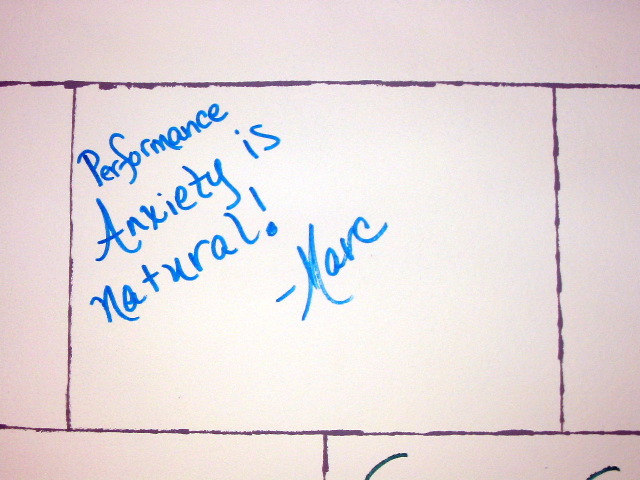 Performance
Anxiety is
natural!
-Marc